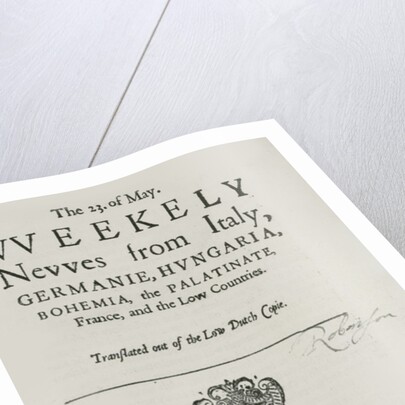 The 23. of May.
VVEEKELY
Nevves from Italy,
GERMANIE, HVNGARIA,
BOHEMIA, the PALATINATE,
France, and the Low Countries.
Translated out of the Low Dutch Copie.